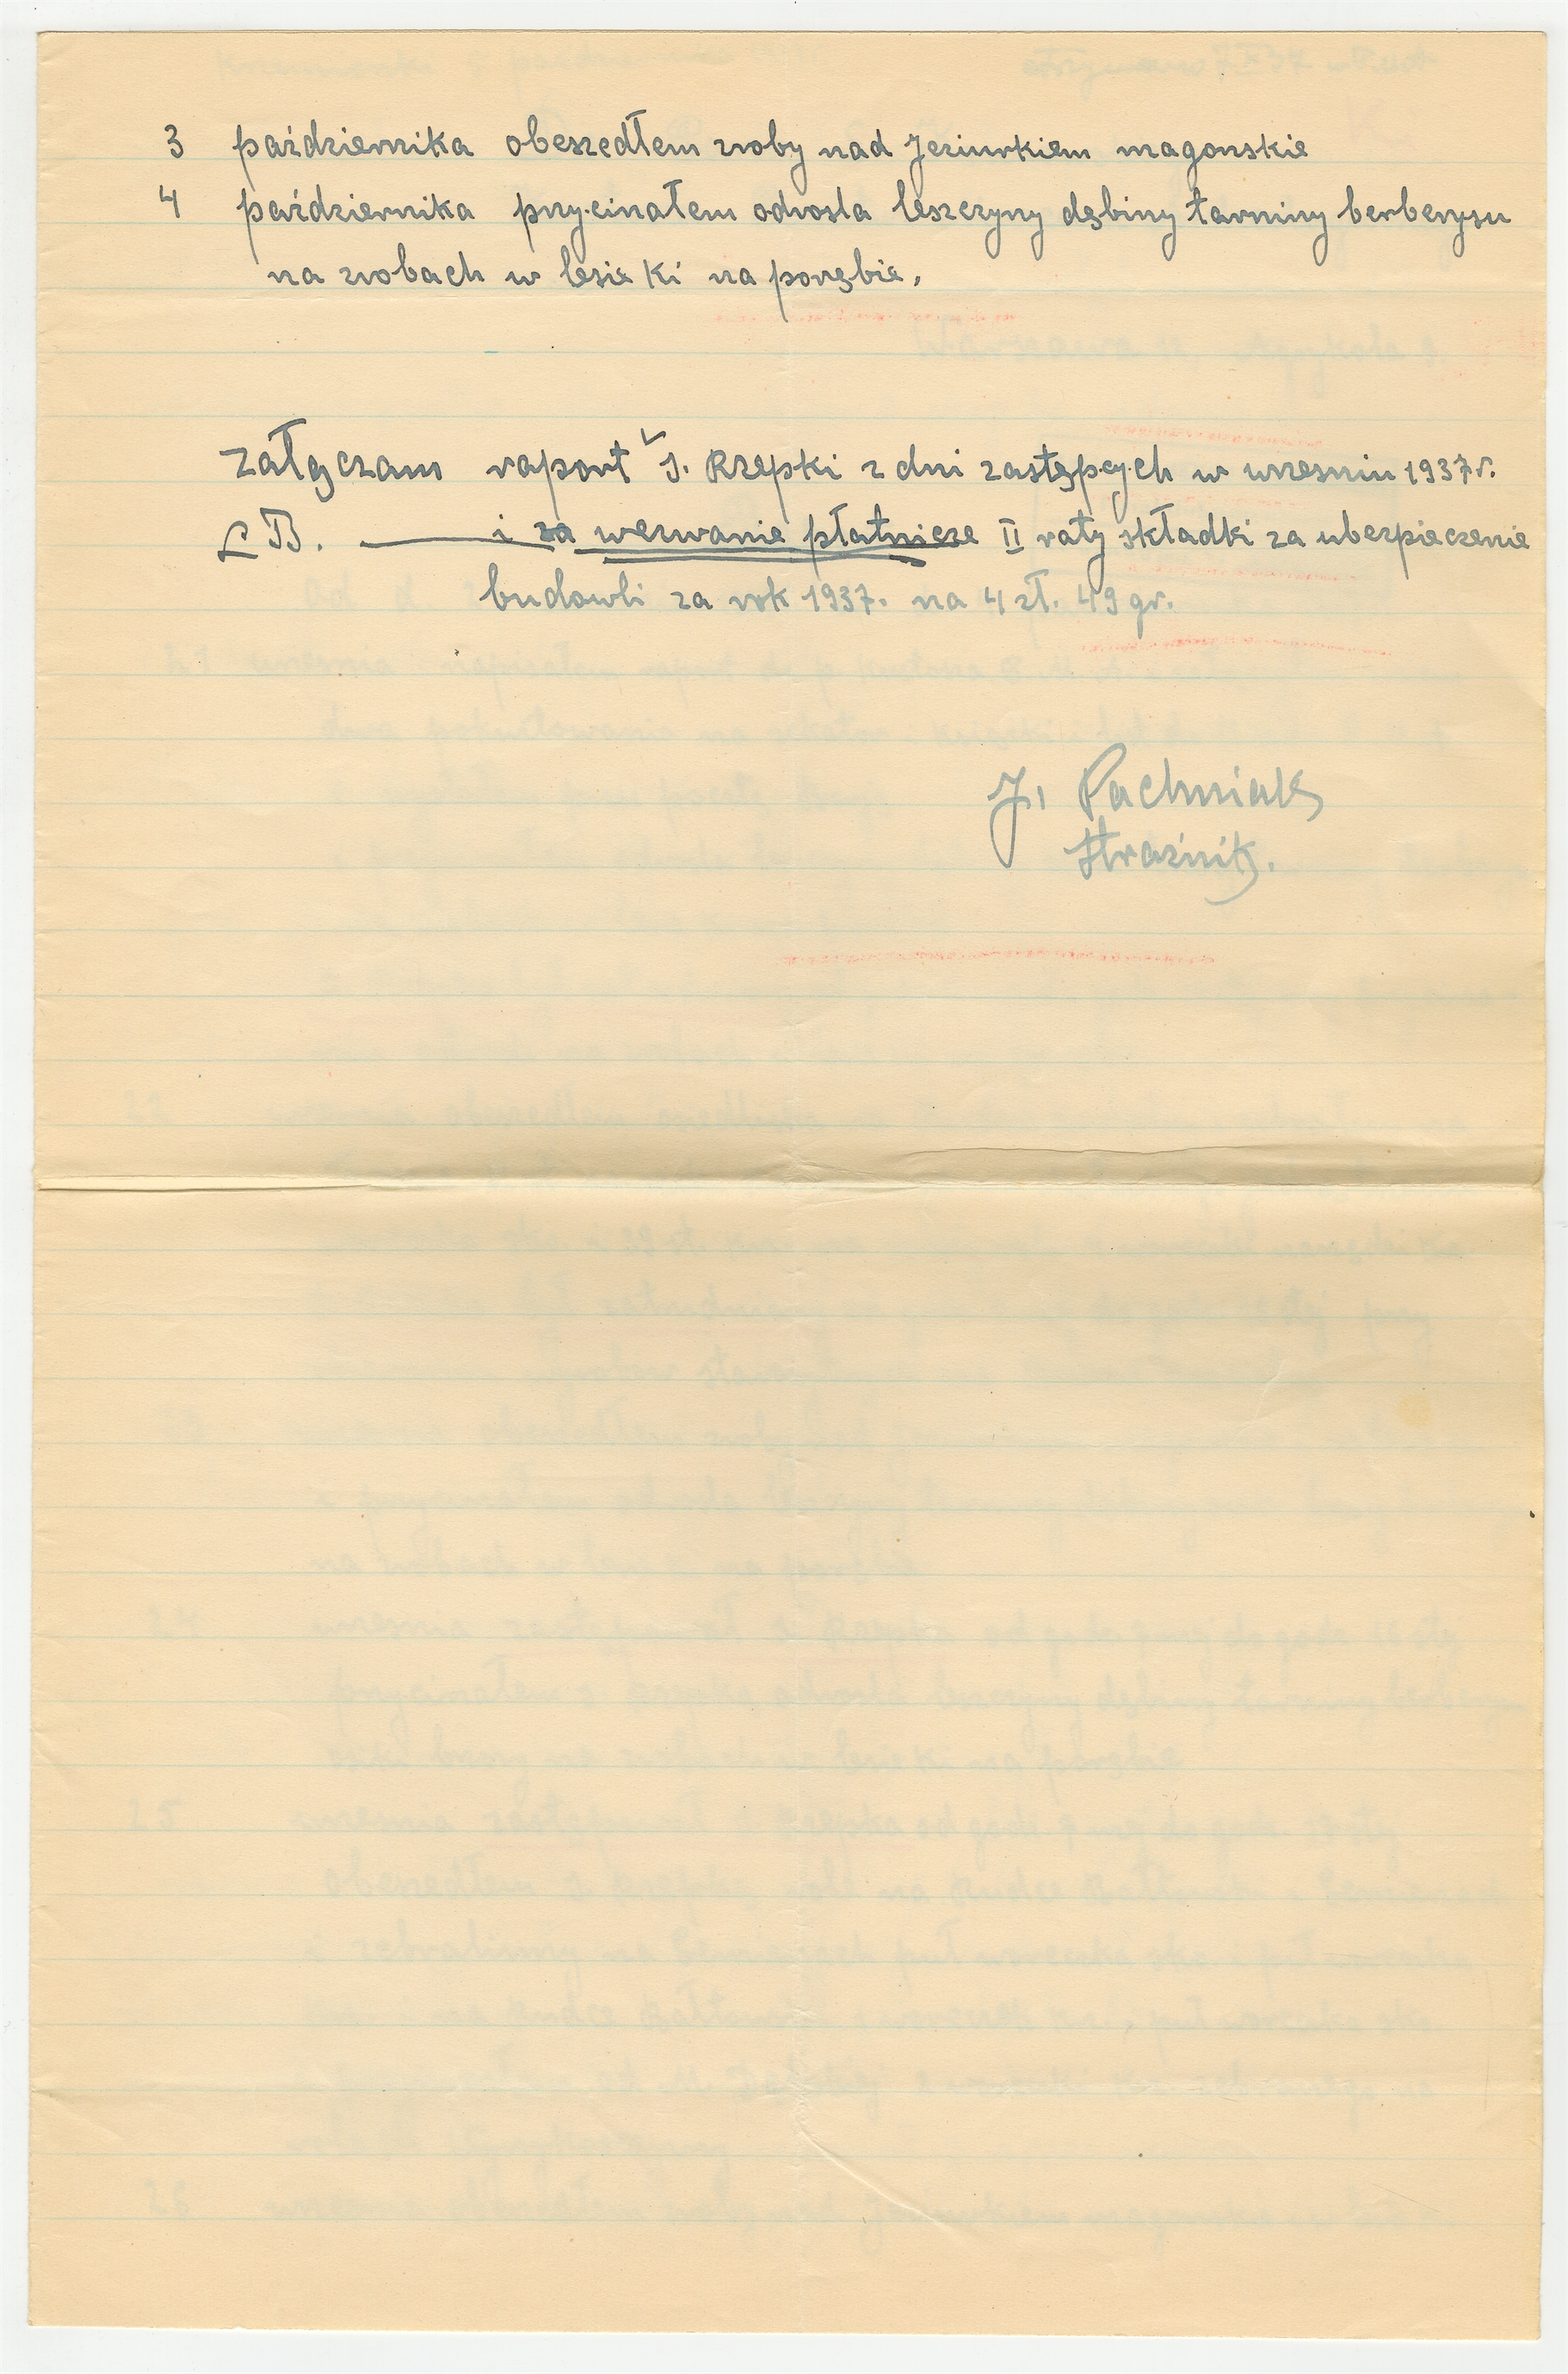 3 października obeszedłem zroby nad Jeziurkiem magonskie
4 października przycinałem odrosla leszczyny dębiny tarniny berberysu
na zrobach w lesie Ki na porębie.
Załączam raport S. Rzepki z dni zastępcych w wrzesniu 1937 r.
i za wezwanie płatnicze II raty składki za ubezpieczenie
budowli za rok 1937. na 4 zł. 49 gr.
J. Pachniak
Strażnik.